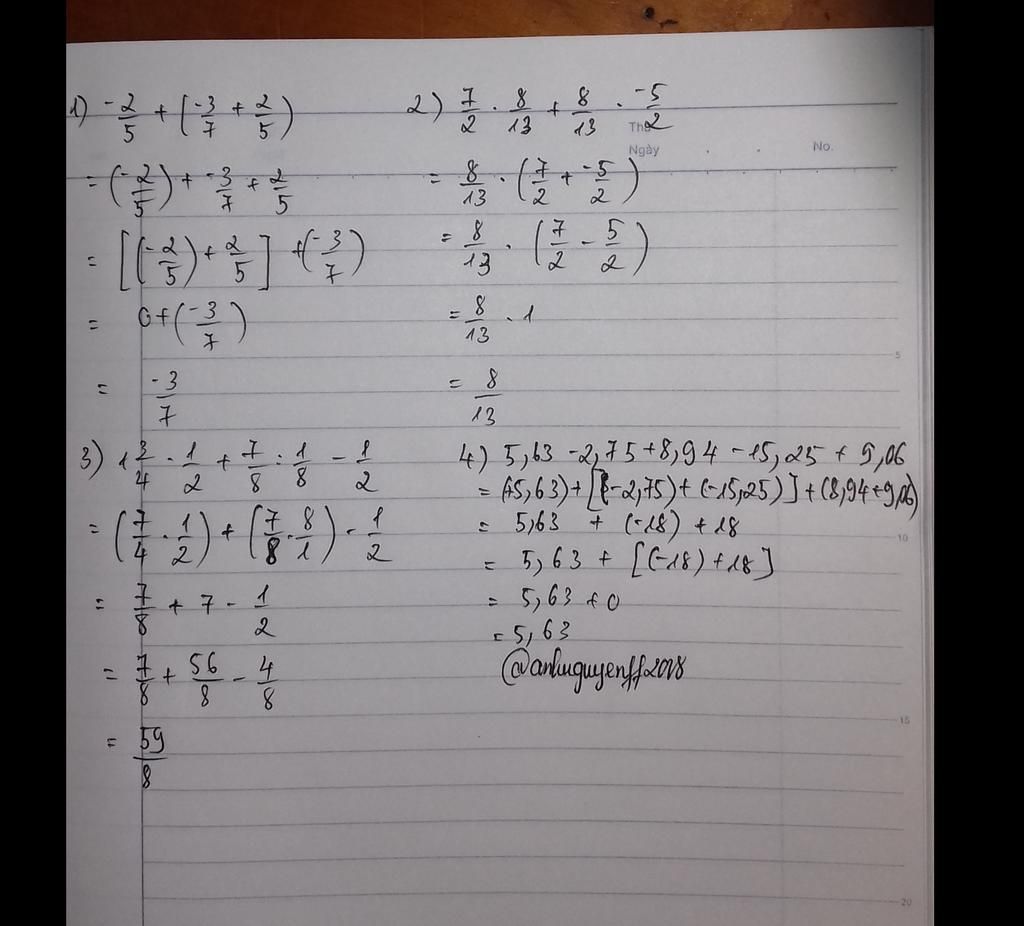 1) -2/5 + (-3/7 + 2/5)
= (-2/5) + -3/7 + 2/5
= [(-2/5) + 2/5] + (-3/7)
= 0 + (-3/7)
= -3/7
2) 7/2 . 8/13 + 8/13 . -5/2
= 8/13 . (7/2 + -5/2)
= 8/13 . (7/2 - 5/2)
= 8/13 . 1
= 8/13
3) 1 3/4 . 1/2 + 7/8 : 1/8 - 1/2
= (7/4 . 1/2) + (7/8 . 8/1) - 1/2
= 7/8 + 7 - 1/2
= 7/8 + 56/8 - 4/8
= 59/8
4) 5,63 - 2,75 + 8,94 - 15,25 + 9,06
= (+5,63) + [(-2,75) + (-15,25)] + (8,94 + 9,06)
= 5,63 + (-18) + 18
= 5,63 + [(-18) + 18]
= 5,63 + 0
= 5,63
@anhnguyenff2008
Thứ
Ngày . . No.
5
10
15
20